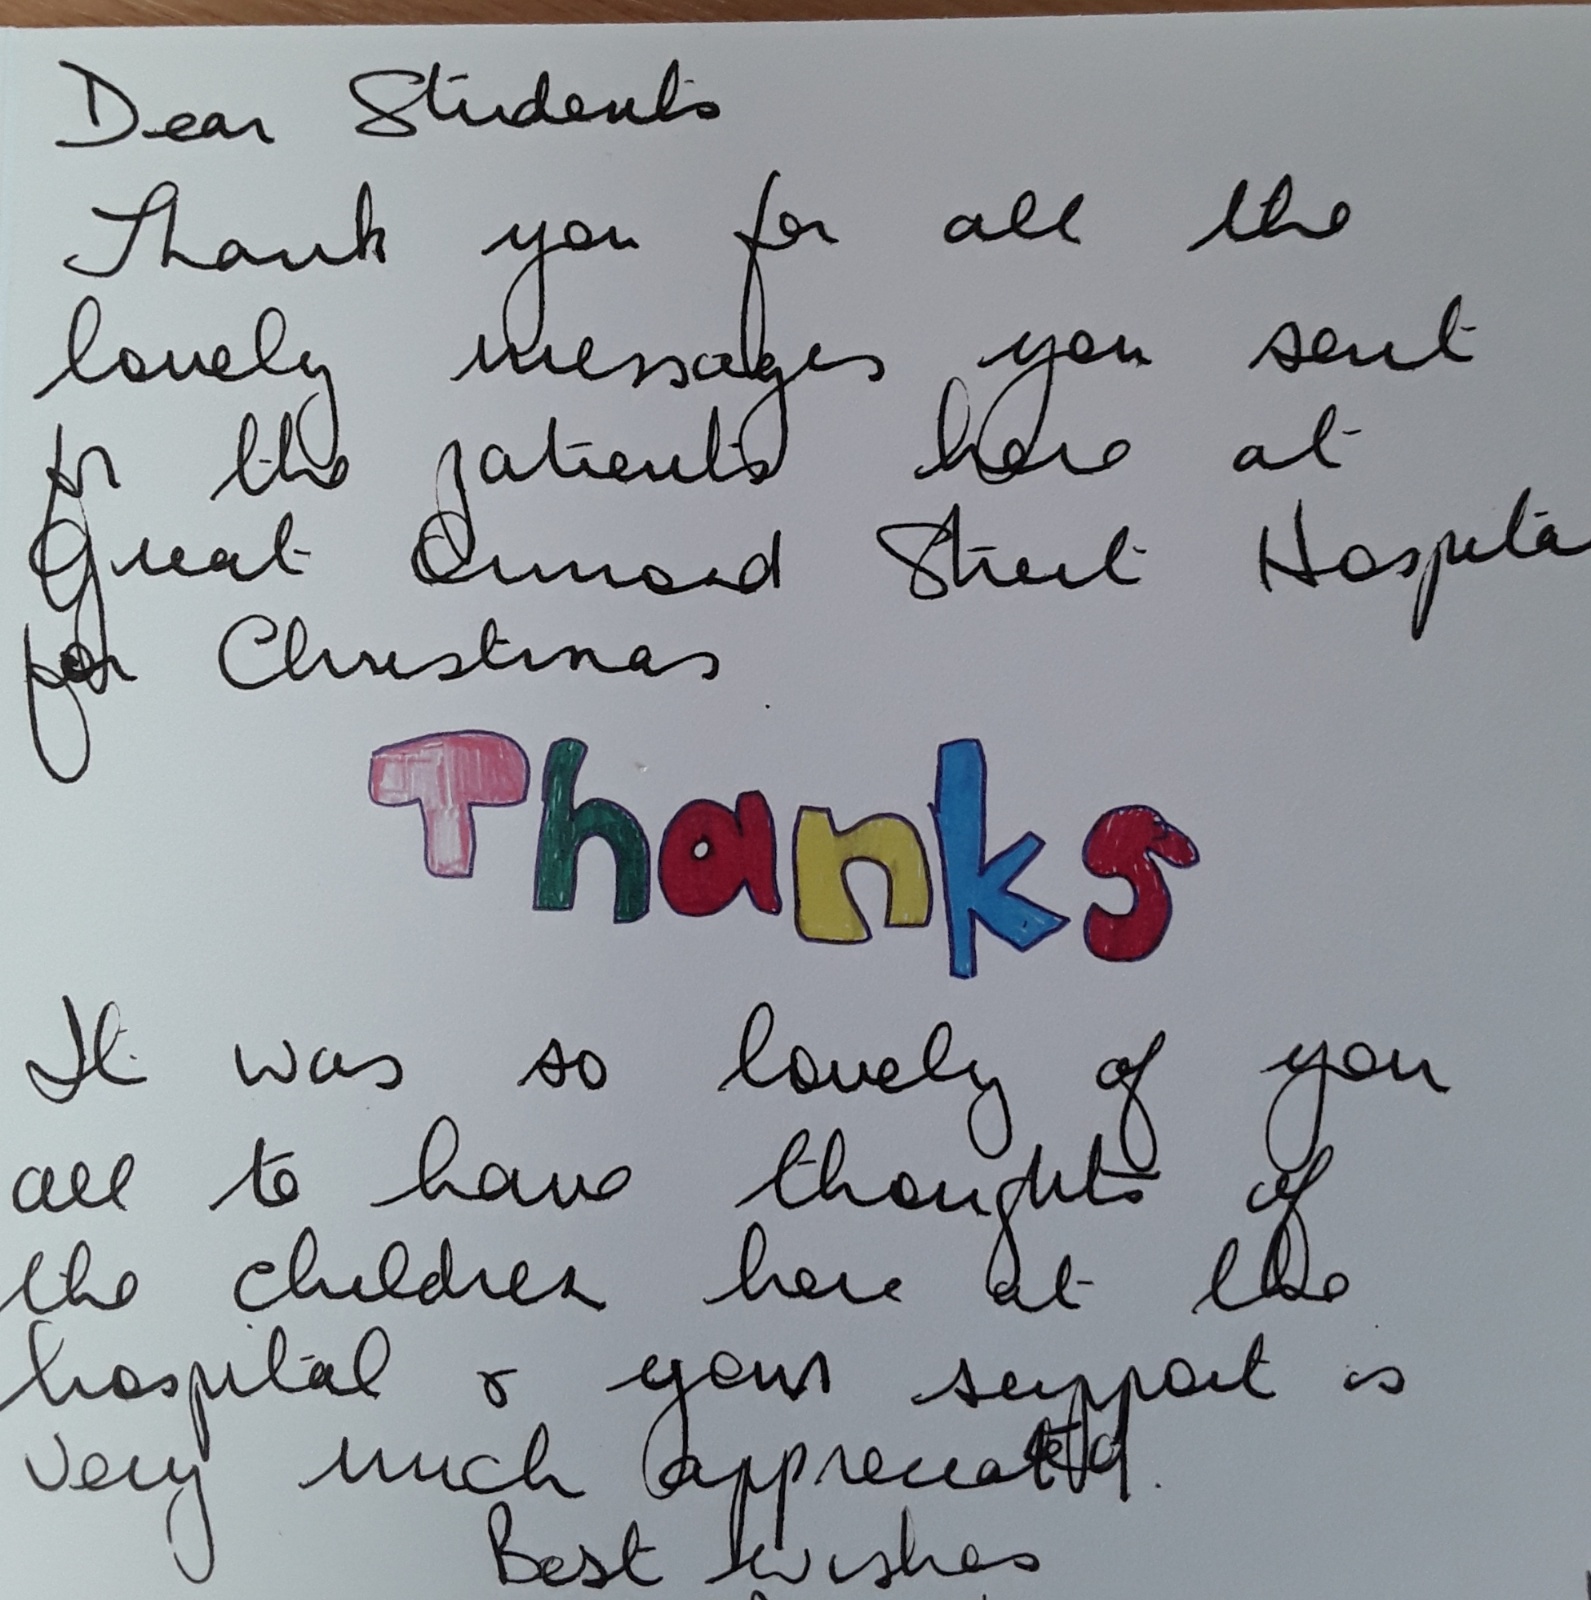 Dear Students
Thank you for all the
lovely messages you sent
for the patients here at
Great Ormond Street Hospita
for Christmas
Thanks
It was so lovely of you
all to have thoughts of
the children here at the
hospital & your support is
very much appreciated.
Best Wishes